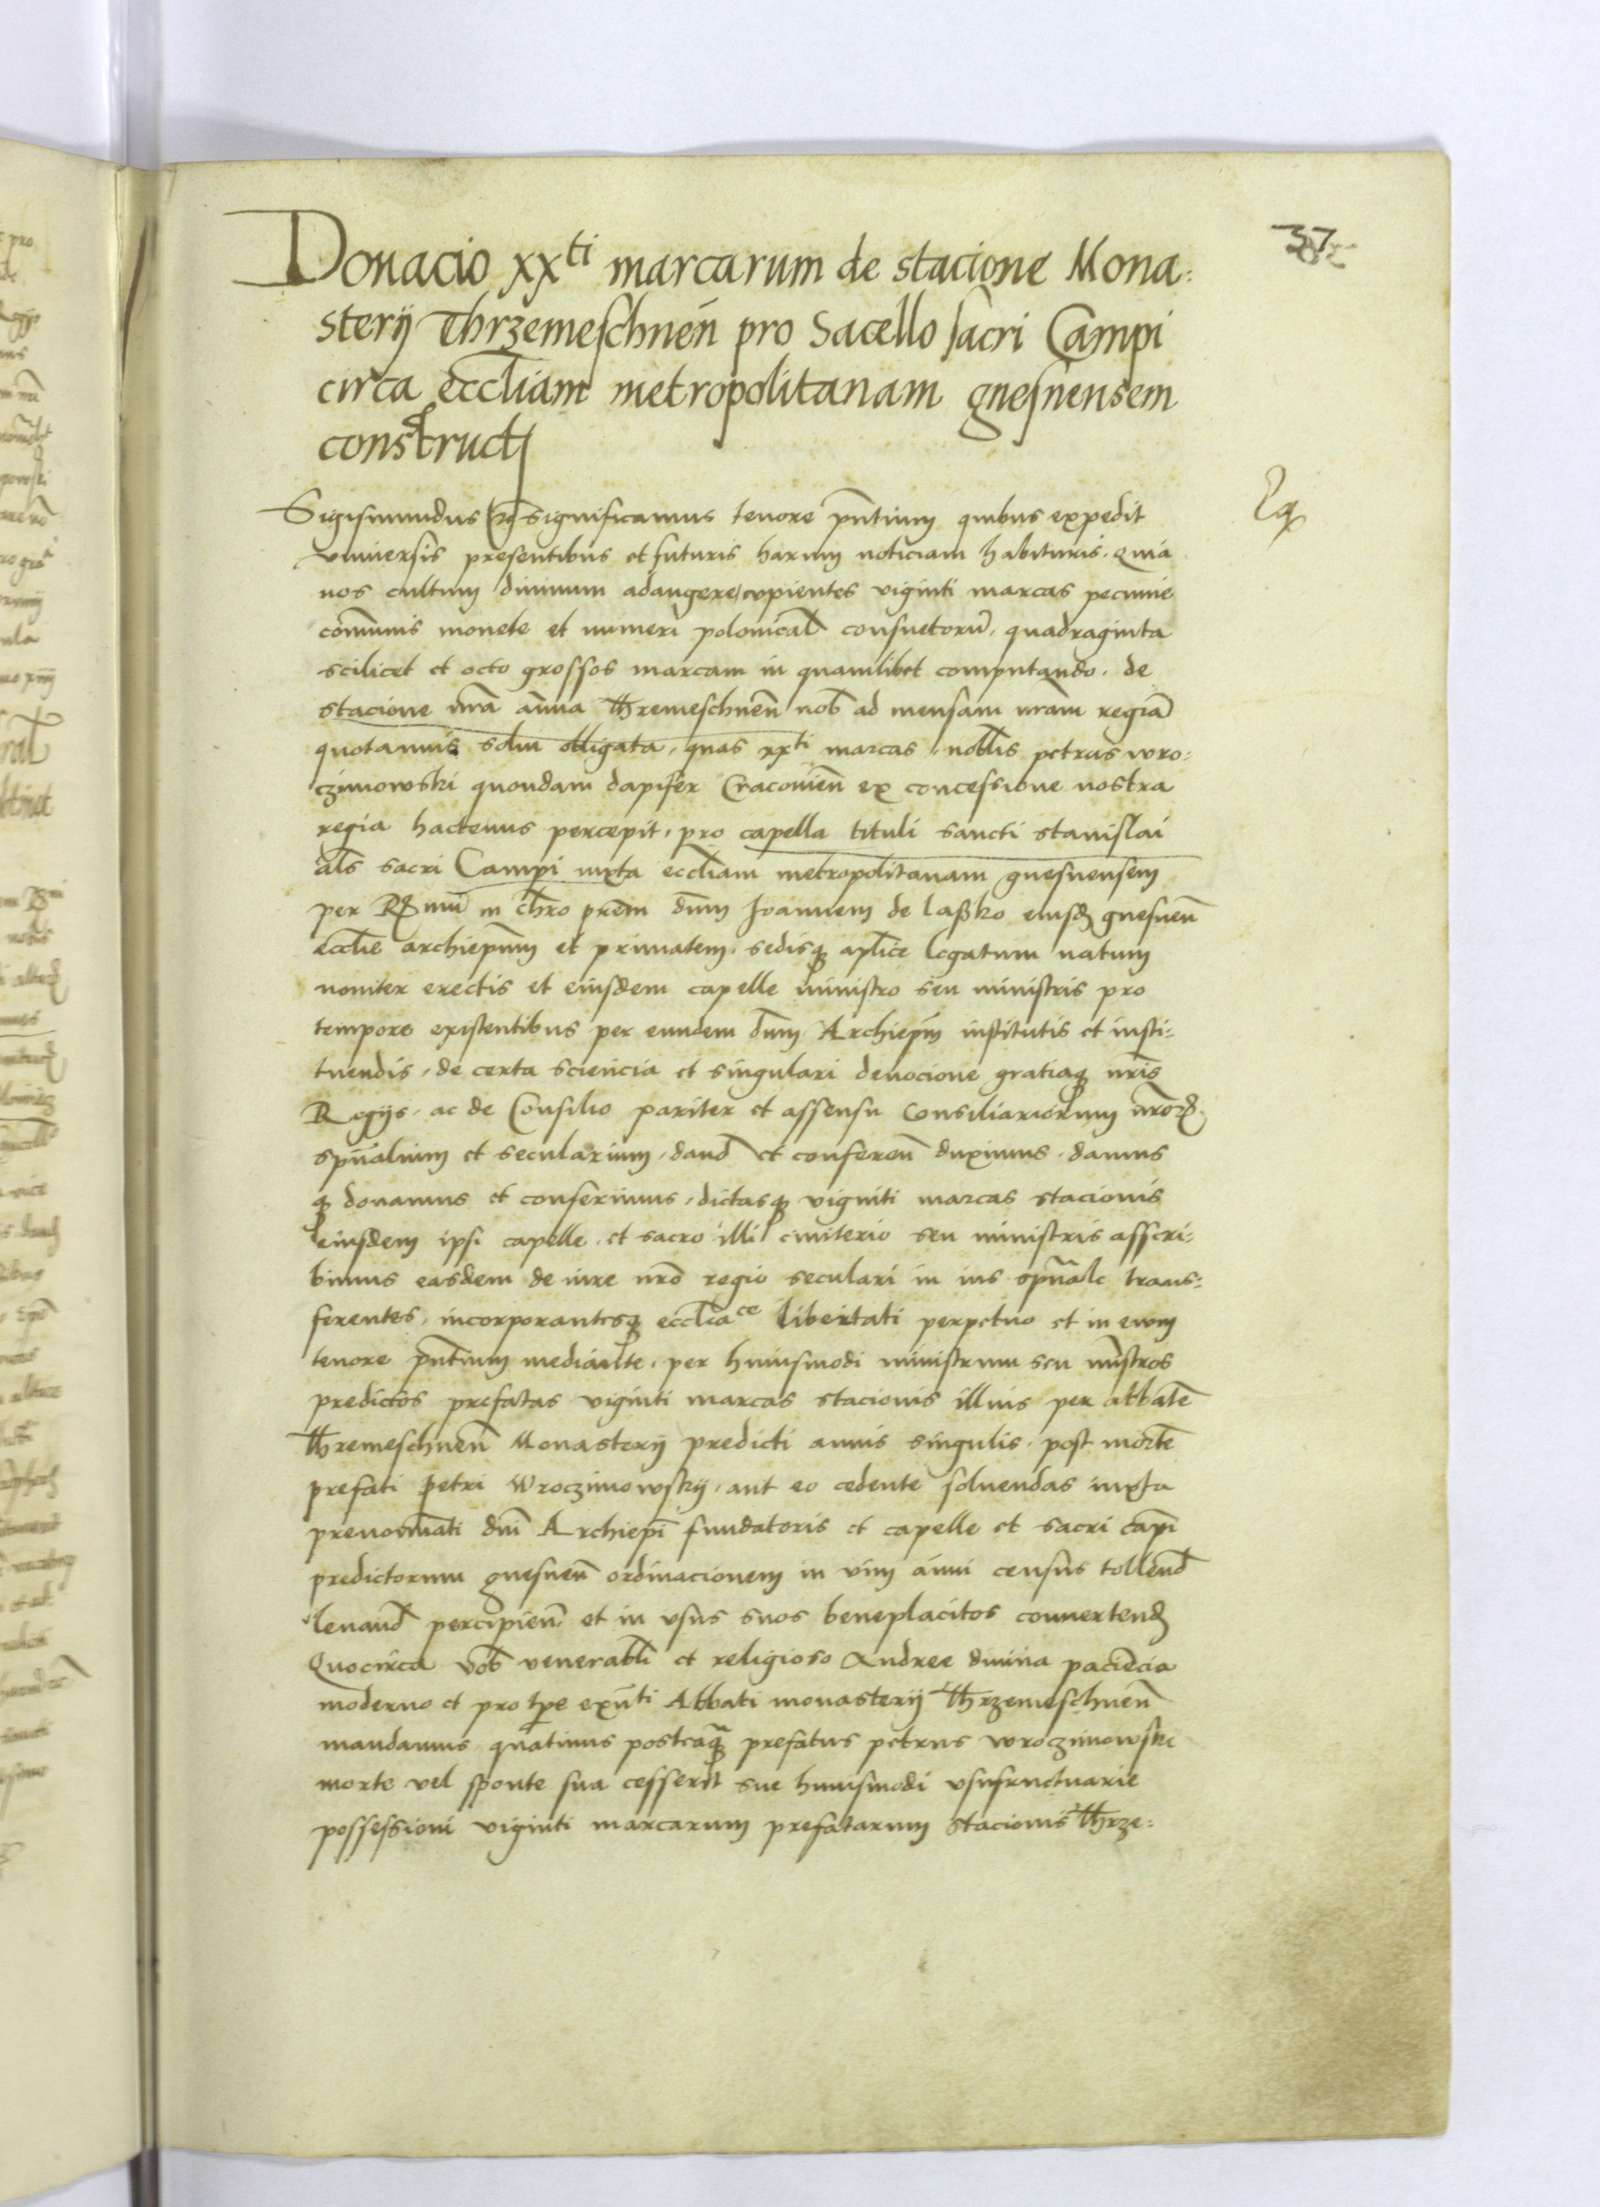 37
Donacio xxti marcarum de stacione Mona:
sterij Thrzemeschnen̄ pro Sacello sacri Campi
circa eccl̄iam metropolitanam gnesnensem
constructj
Sigismundus significamus tenore pn̄tium quibus expedit
vniuersis presentibus et futuris harum noticiam habituris. Quia
nos cultum diuinum adaugere cupientes viginti marcas pecunie
com̄unis monete et numeri polonical̄ consuetorū, quadraginta
scilicet et octo grossos marcam in quamlibet computando. de
stacione nr̄a an̄ua Thremeschnen̄ nob̄ ad mensam nr̄am regiā
quotannis solui obligata, quas xxti marcas nobl̄is petrus wro:
czimowski quondam dapifer Cracouien̄ ex concessione nostra
regia hactenus percepit, pro capella tituli sancti stanislai
al̄s sacri Campi iuxta eccl̄iam metropolitanam gnesnensem
per R̄mū in chr̄o prēm dn̄m Joannem de lasko eiusd gnesnen̄
eccl̄ie archiep̄um et primatem. sedisq apl̄ice legatum natum
nouiter erectis et eiusdem capelle ministro seu ministris pro
tempore existentibus per eundem dn̄m Archiep̄m institutis et insti:
tuendis, de certa sciencia et singulari deuocione gratiaq nr̄is
Regijs. ac de Consilio pariter et assensu Consiliariorum nr̄or
spūalium et secularium, dand̄ et conferen̄ duximus. damus
q donamus et conferimus, dictasq viginti marcas stacionis
eiusdem ipsi capelle. et sacro illi cimiterio seu ministris asscri:
bimus easdem de iure nr̄o regio seculari in ius spūale trans:
ferentes, incorporantesq eccl̄iace libertati perpetuo et in euum
tenore pn̄tium mediante. per huiusmodi ministrum seu mīstros
predictos prefatas viginti marcas stacionis illius per abbatē
Thremeschnen̄ Monasterij predicti annis singulis. post mortē
prefati petri Wroczimowskij, aut eo cedente soluendas iuxta
prenominati dn̄i Archiep̄i fundatoris et capelle et sacri cāpi
predictorum gnesnen̄ ordinacionem in vim an̄ui census tollend̄
leuand̄ percipien̄. et in vsus suos beneplacitos conuertend
Quocirca vob̄ venerabl̄i et religioso Andree diuina paciēcia
moderno et pro tp̄e exn̄ti Abbati monasterij Thrzemeschnen̄
mandamus quatinus posteaq prefatus petrus wroczimowski
morte vel sponte sua cesserit sue huiusmodi vsufructuarie
possessioni viginti marcarum prefatarum stacionis Thrze: